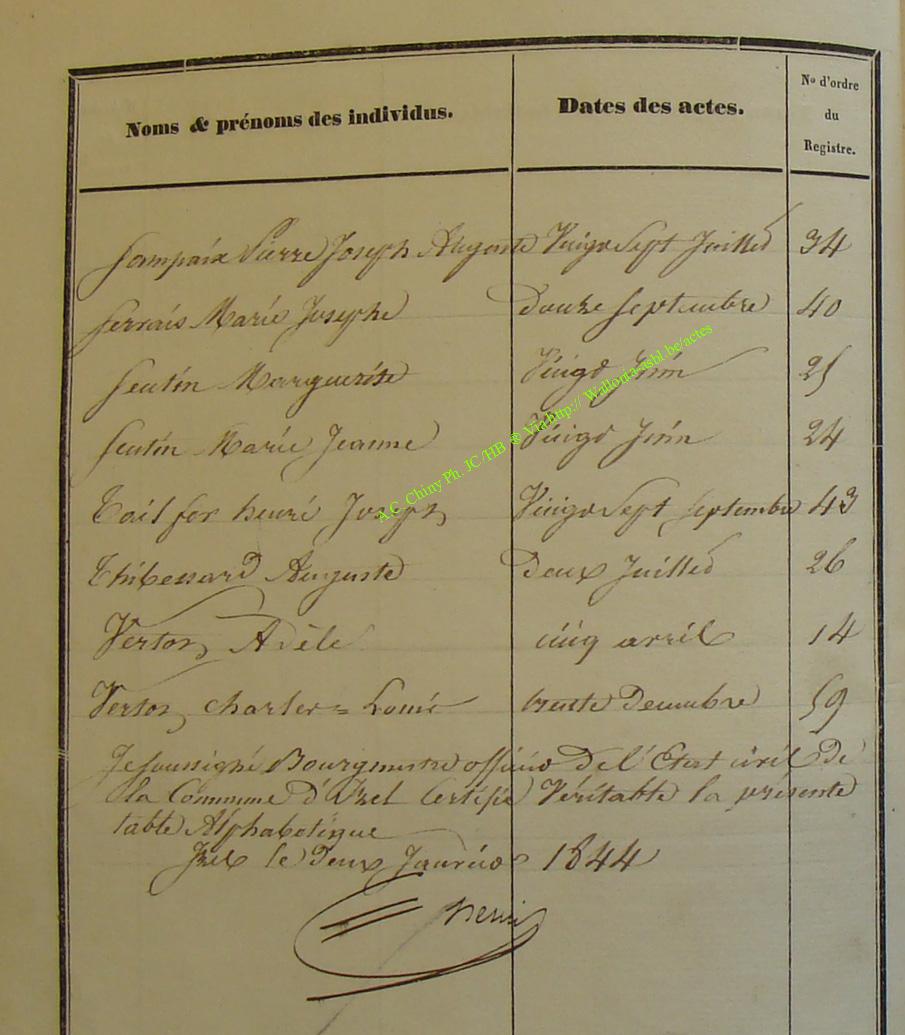 Noms & prénoms des individus. Dates des actes. No d'ordre du Registre.
Sampaix Pierre Joseph Auguste Vingt Sept Juillet 34
Serrais Marie Josephe douze Septembre 40
Seutin Marguerite Vingt Juin 25
Seutin Marie Jeanne Vingt Juin 24
A.C. Chiny Ph. JC/HB ® Via http://Wallonia-asbl.be/actes
Tailfer henri Joseph Vingt Sept Septembre 43
Thibessard Auguste Deux Juillet 26
Verton Adèle cinq avril 14
Verton charles = Louis trente Decembre 59
Je soussigné Bourgmestre officier de l'Etat civil De
la Commune d'Izel Certifie Véritable la présente
table Alphabetique
Izel le Deux Janvier 1844
henri